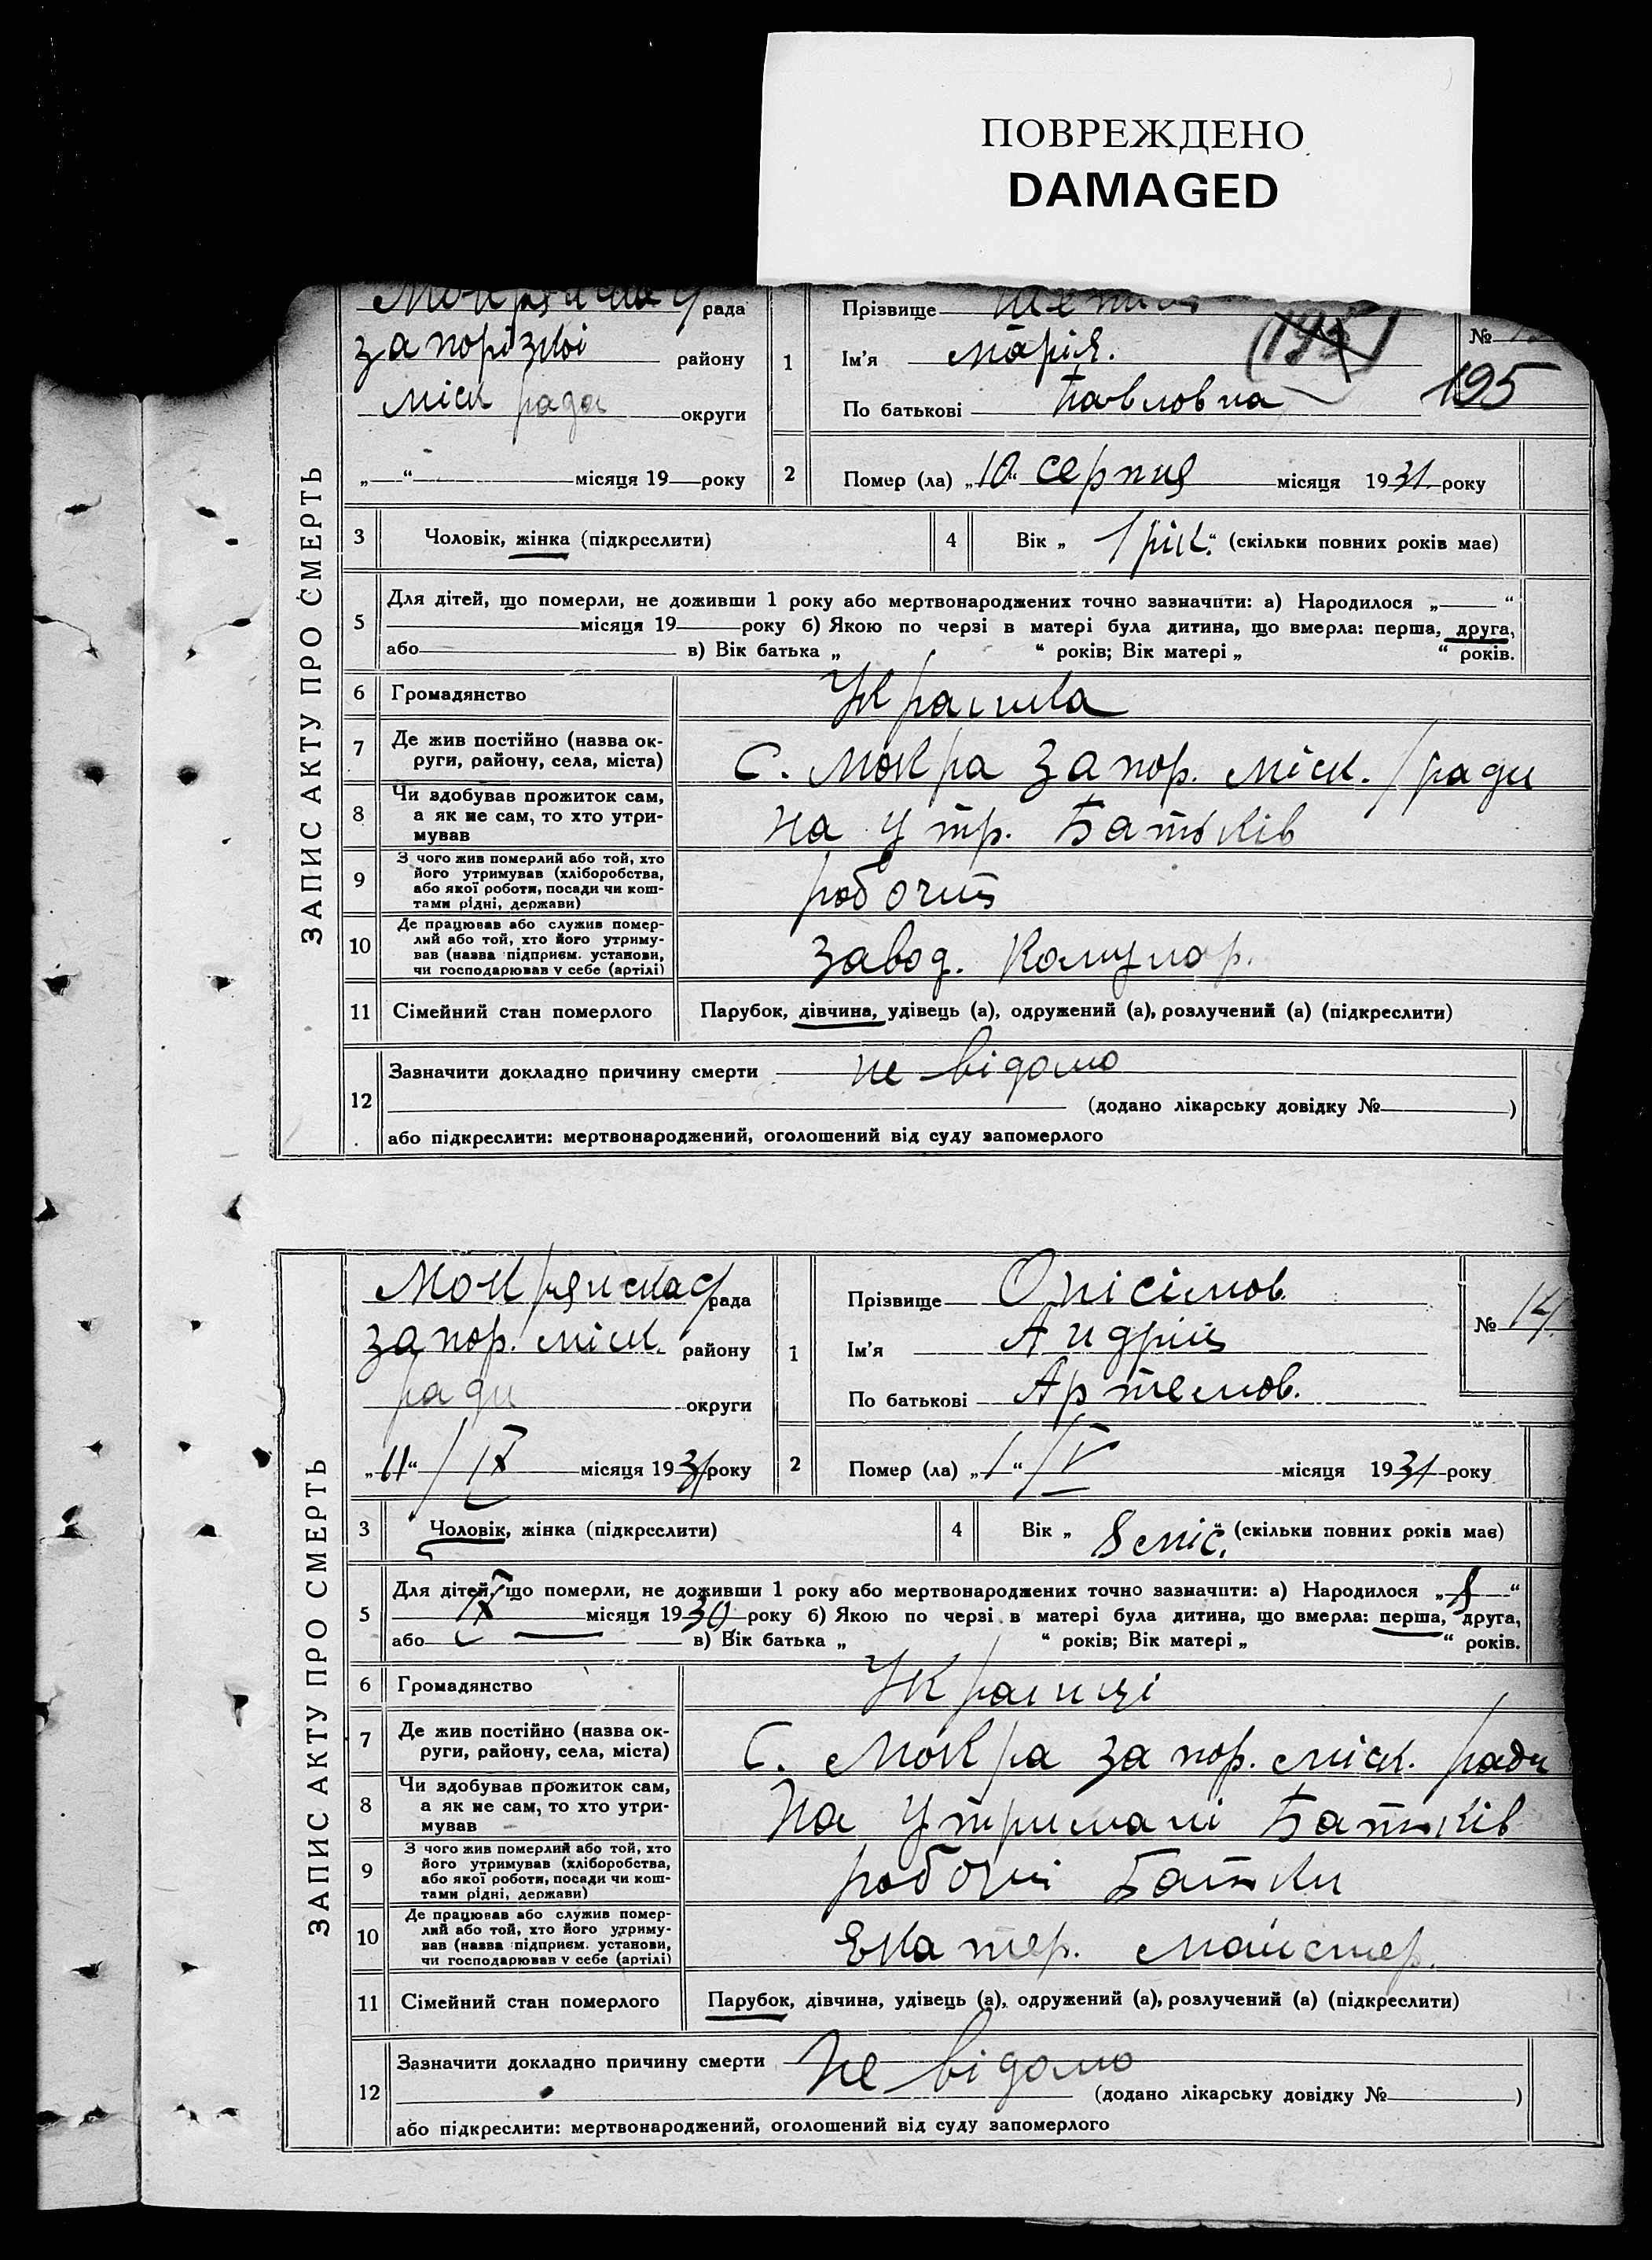 ПОВРЕЖДЕНО
DAMAGED
ЗАПИС АКТУ ПРО СМЕРТЬ
рада
Запорізкої району
міск рада округи
„ “ місяця 19 року
1 Прізвище
Ім'я Марія.
По батькові Павловна
№
195
2 Помер (ла) „10“ серпня місяця 1931 року
3 Чоловік, жінка (підкреслити)
4 Вік „ 1 рік “ (скільки повних років має)
5 Для дітей, що померли, не доживши 1 року або мертвонароджених точно зазначити: а) Народилося „ “
місяця 19 року б) Якою по черзі в матері була дитина, що вмерла: перша, друга,
або в) Вік батька „ “ років; Вік матері „ “ років.
6 Громадянство Українка
7 Де жив постійно (назва округи, району, села, міста) С. Мокра Запор. міск. ради
8 Чи здобував прожиток сам, а як не сам, то хто утримував на утр. Батьків
9 З чого жив померлий або той, хто його утримував (хліборобства, або якої роботи, посади чи коштами рідні, держави) робочий
10 Де працював або служив померлий або той, хто його утримував (назва підприєм. установи, чи господарював у себе (артілі) завод. Комунар.
11 Сімейний стан померлого Парубок, дівчина, удівець (а), одружений (а), розлучений (а) (підкреслити)
12 Зазначити докладно причину смерти не відомо
(додано лікарську довідку № )
або підкреслити: мертвонароджений, оголошений від суду запомерлого
ЗАПИС АКТУ ПРО СМЕРТЬ
Мокрянська рада
запор. міск. району
ради округи
„11“ / IX місяця 1931 року
1 Прізвище Онісімов
Ім'я Андрій
По батькові Артемов.
№ 14
2 Помер (ла) „1“ / V місяця 1931 року
3 Чоловік, жінка (підкреслити)
4 Вік „ 8 міс. “ (скільки повних років має)
5 Для дітей, що померли, не доживши 1 року або мертвонароджених точно зазначити: а) Народилося „ “
IX місяця 1930 року б) Якою по черзі в матері була дитина, що вмерла: перша, друга,
або в) Вік батька „ “ років; Вік матері „ “ років.
6 Громадянство Українці
7 Де жив постійно (назва округи, району, села, міста) С. Мокра запор. міск. ради
8 Чи здобував прожиток сам, а як не сам, то хто утримував На утримані Батьків
9 З чого жив померлий або той, хто його утримував (хліборобства, або якої роботи, посади чи коштами рідні, держави) робочі Батьки
10 Де працював або служив померлий або той, хто його утримував (назва підприєм. установи, чи господарював у себе (артілі) Екатер. майстер.
11 Сімейний стан померлого Парубок, дівчина, удівець (а), одружений (а), розлучений (а) (підкреслити)
12 Зазначити докладно причину смерти Не відомо
(додано лікарську довідку № )
або підкреслити: мертвонароджений, оголошений від суду запомерлого